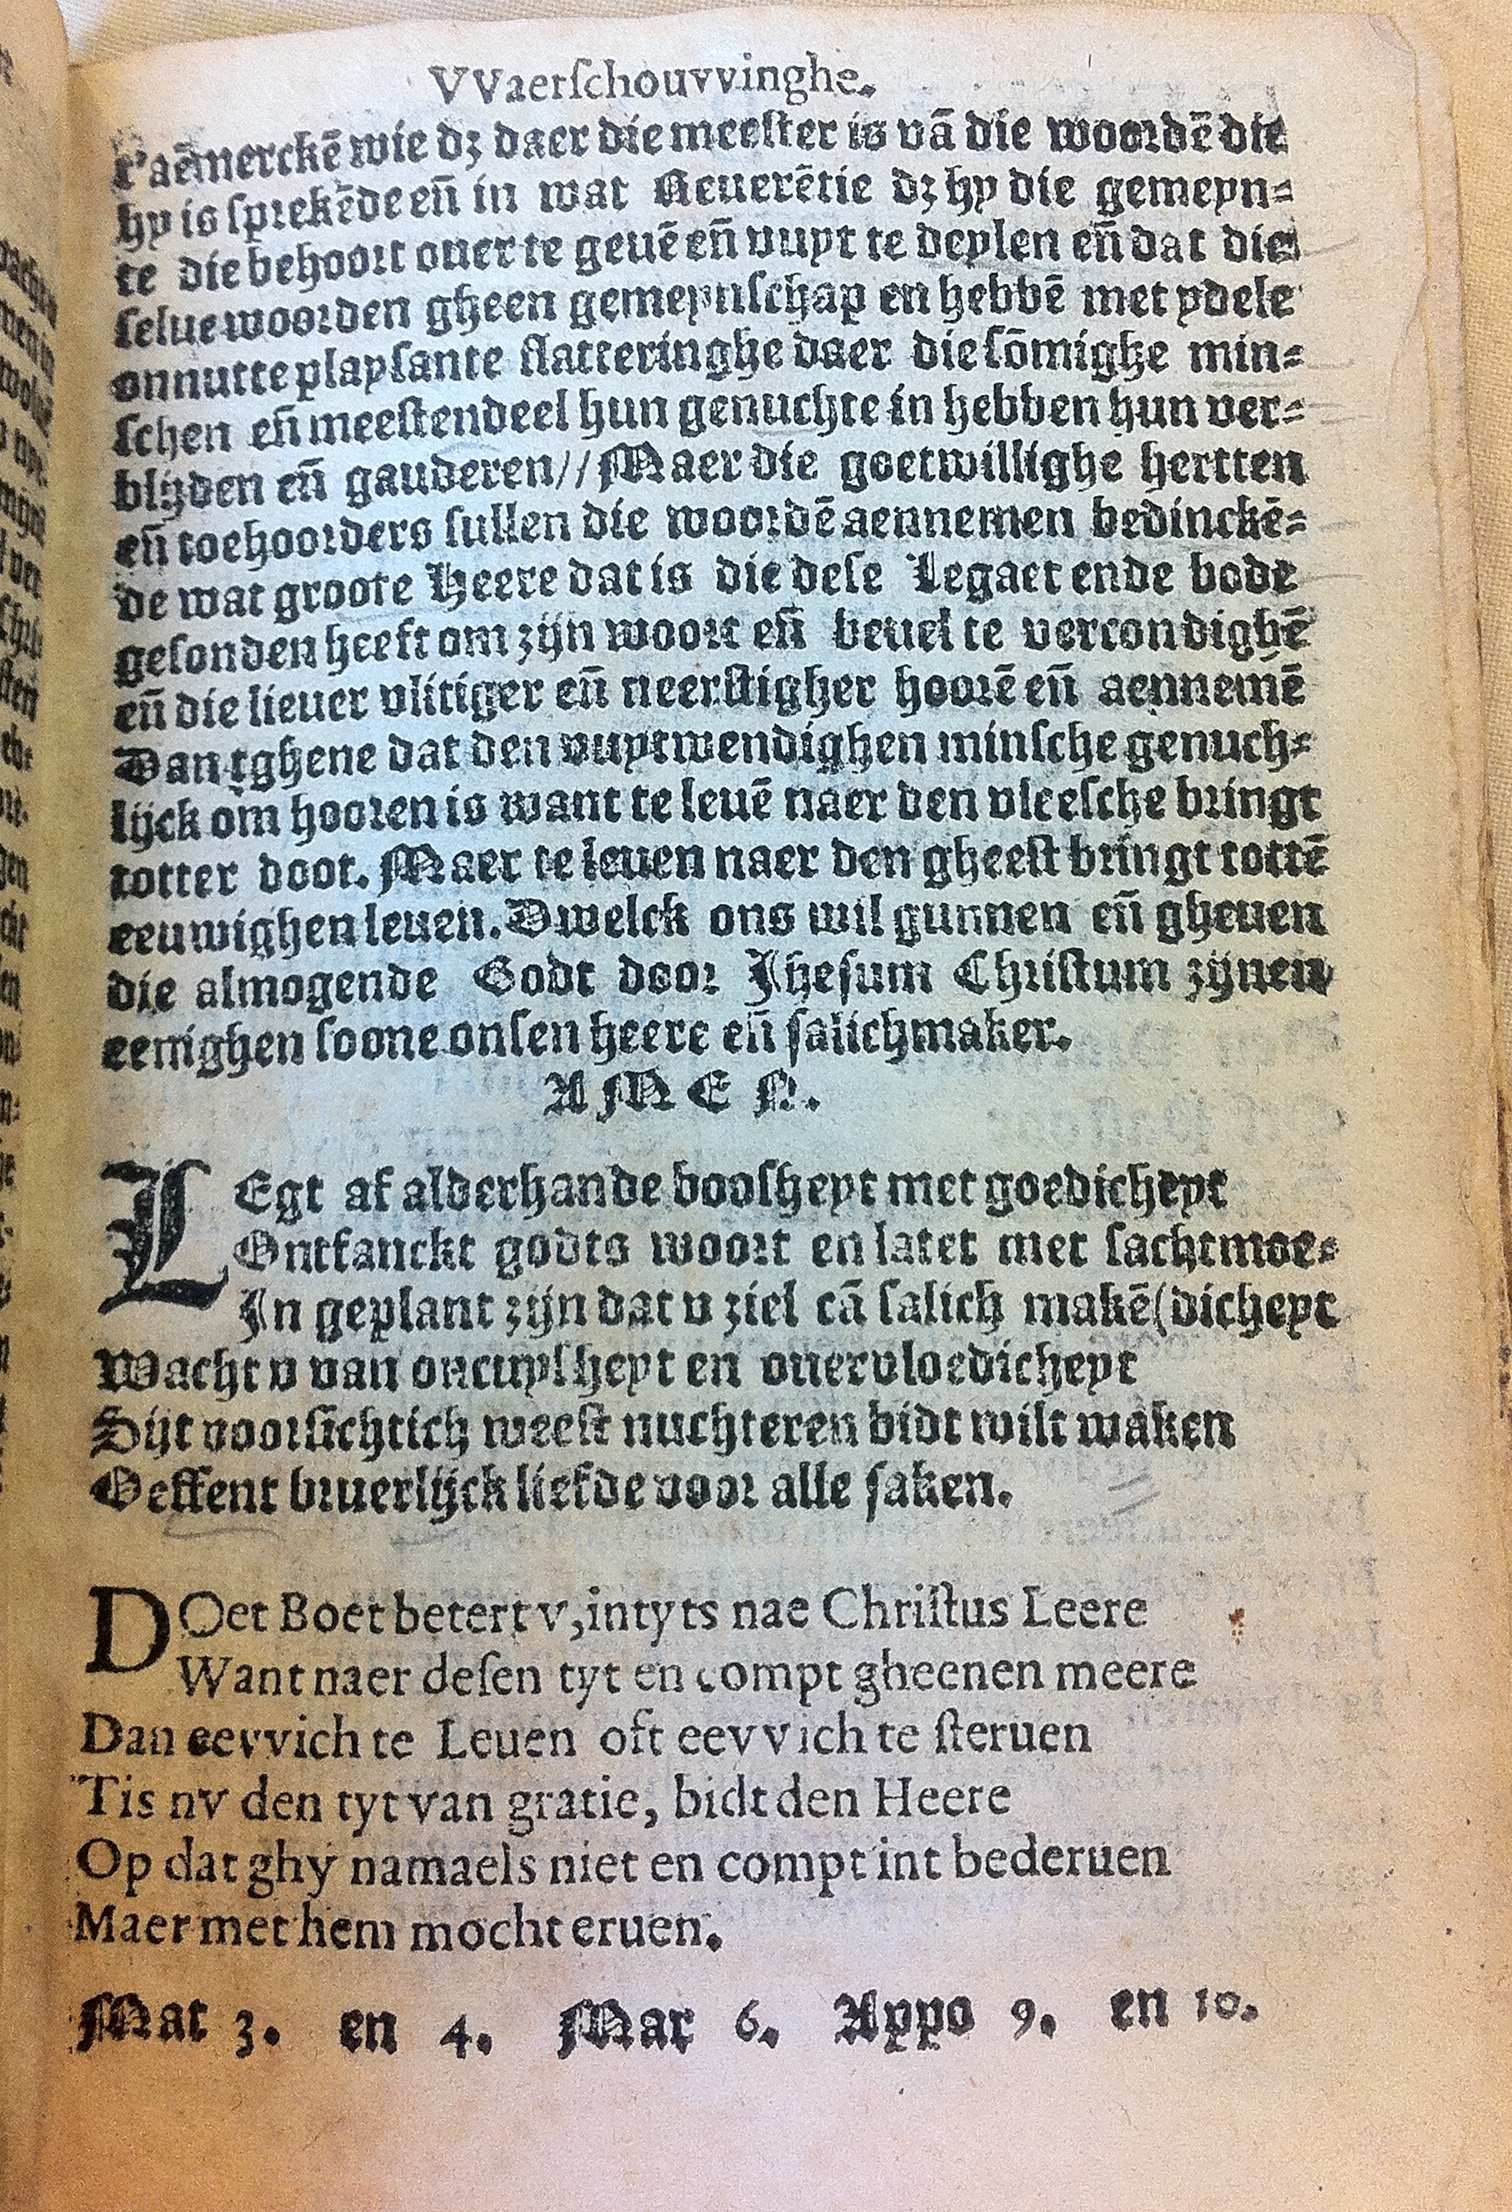 VVaerſchouvvinghe.
t'aēmerckē wie dʒ daer die meeſter is vā die woordē die
hy is ſprekēde eñ in wat Reuerētie dʒ hy die gemeyn⸗
te die behoort ouer te geuē eñ vuyt te deylen eñ dat die
ſelue woorden gheen gemeynſchap en hebbē met ydele
onnutte playſante flatteringhe daer die ſōmighe min⸗
ſchen eñ meeſtendeel hun genuchte in hebben hun ver⸗
blijden eñ gauderen//Maer die goetwillighe hertten
eñ toehoorders ſullen die woordē aennemen bedinckē⸗
de wat groote Heere dat is die deſe Legaet ende bode
geſonden heeft om zijn woort eñ beuel te vercondighē
eñ die lieuer vlitiger eñ neerſtigher hoorē eñ aennemē
Dan tghene dat den vuytwendighen minſche genuch⸗
lijck om hooren is want te leuē naer den vleeſche bringt
totter doot. Maer te leuen naer den gheeſt bringt tottē
eeuwighen leuen. Dwelck ons wil gunnen eñ gheuen
die almogende Godt door Jheſum Chriſtum zijnen
eenighen ſoone onſen heere eñ ſalichmaker.
AMEN.
LEgt af alderhande booſheyt met goedicheyt
Ontfanckt godts woort en latet met ſachtmoe⸗
In geplant zijn dat v ziel cā ſalich makē(dicheyt
Wacht v van oncuyſheyt en ouervloedicheyt
Sijt voorſichtich weeſt nuchteren bidt wilt waken
Oeffent bruerlijck liefde voor alle ſaken.
DOet Boet betert v,intyts nae Chriſtus Leere
Want naer deſen tyt en compt gheenen meere
Dan eevvich te Leuen oft eevvich te ſteruen
'Tis nv den tyt van gratie, bidt den Heere
Op dat ghy namaels niet en compt int bederuen
Maer met hem mocht eruen.
Mat 3. en 4. Mar 6. Appo 9. en 10.